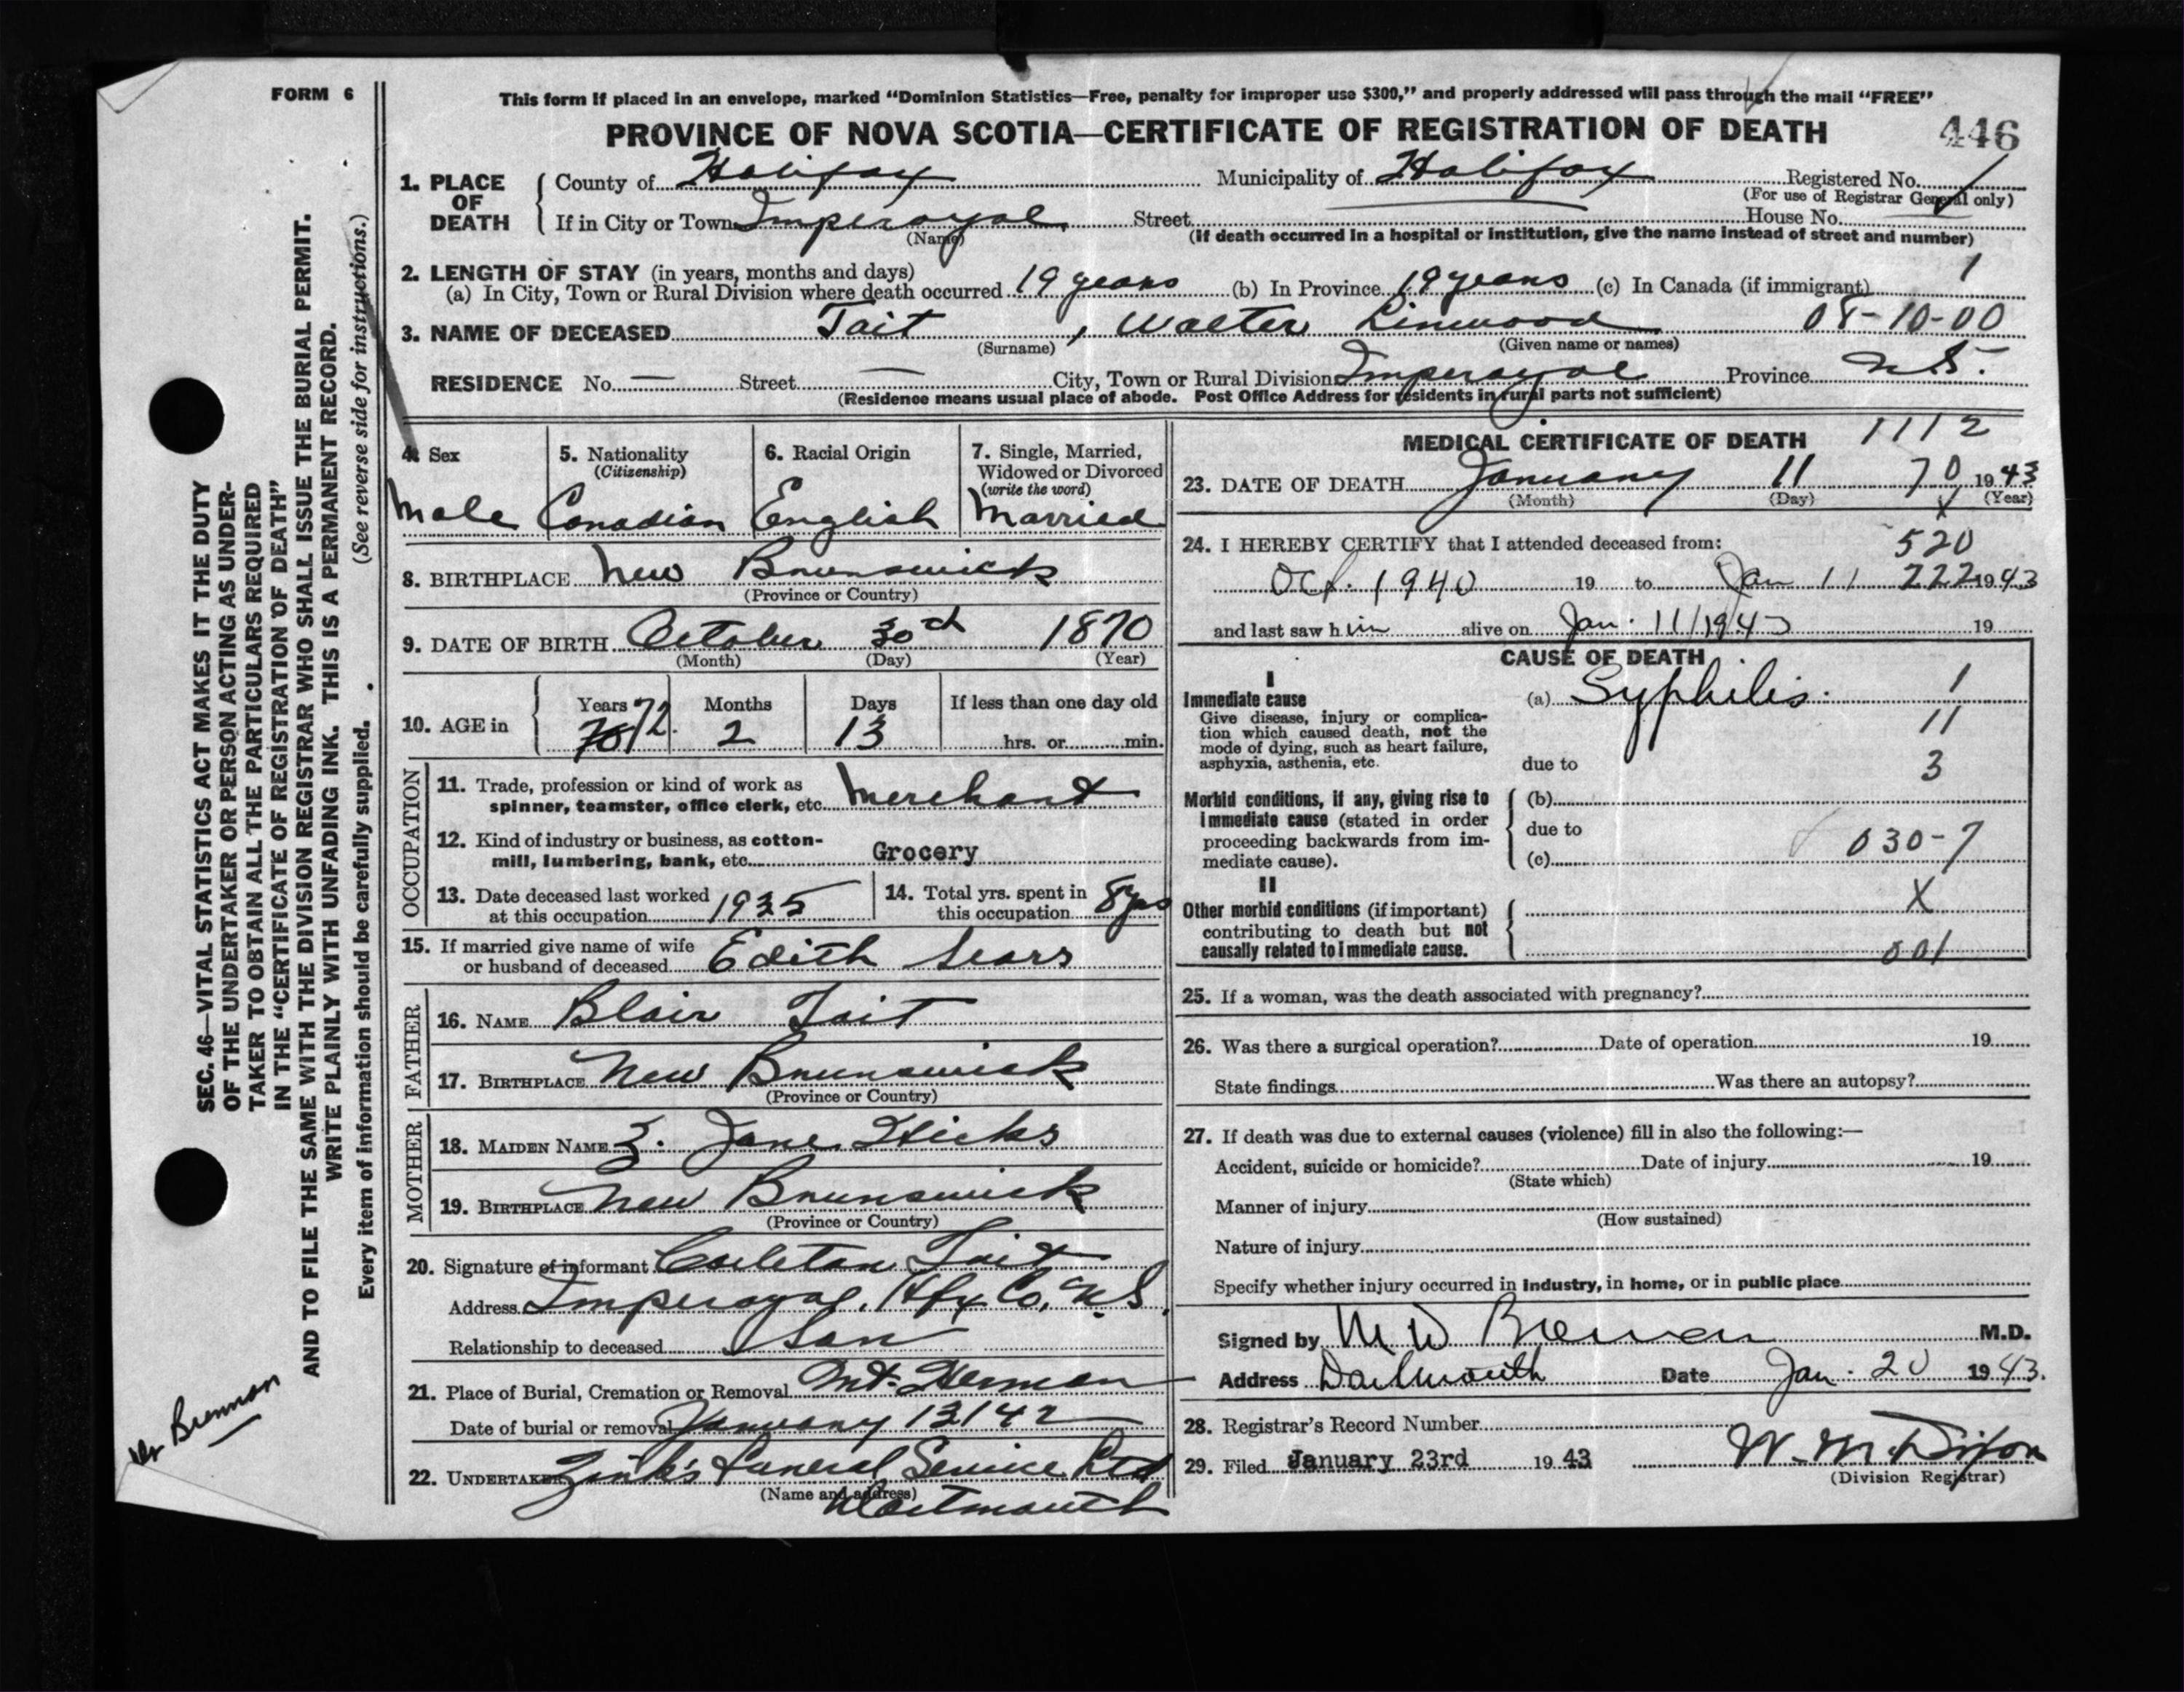 FORM 6
This form if placed in an envelope, marked “Dominion Statistics—Free, penalty for improper use $300,” and properly addressed will pass through the mail “FREE”
PROVINCE OF NOVA SCOTIA—CERTIFICATE OF REGISTRATION OF DEATH
446
1. PLACE OF DEATH
County of Halifax Municipality of Halifax Registered No.
(For use of Registrar General only)
If in City or Town Imperoyal Street House No.
(Name) (If death occurred in a hospital or institution, give the name instead of street and number)
2. LENGTH OF STAY (in years, months and days)
(a) In City, Town or Rural Division where death occurred 19 years (b) In Province 19 years (c) In Canada (if immigrant) 1
3. NAME OF DECEASED Tait, Walter Linwood 08-10-00
(Surname) (Given name or names)
RESIDENCE No. — Street — City, Town or Rural Division Imperoyal Province N.S.
(Residence means usual place of abode. Post Office Address for residents in rural parts not sufficient)
4. Sex
Male
5. Nationality
(Citizenship)
Canadian
6. Racial Origin
English
7. Single, Married, Widowed or Divorced
(write the word)
Married
8. BIRTHPLACE New Brunswick
(Province or Country)
9. DATE OF BIRTH October 30th 1870
(Month) (Day) (Year)
10. AGE in
Years Months Days If less than one day old
72 2 13 hrs. or min.
OCCUPATION
11. Trade, profession or kind of work as
spinner, teamster, office clerk, etc. Merchant
12. Kind of industry or business, as cotton-
mill, lumbering, bank, etc. Grocery
13. Date deceased last worked
at this occupation 1935
14. Total yrs. spent in
this occupation 8 yrs
15. If married give name of wife
or husband of deceased Edith Sears
FATHER
16. NAME Blair Tait
17. BIRTHPLACE New Brunswick
(Province or Country)
MOTHER
18. MAIDEN NAME Jane Hicks
19. BIRTHPLACE New Brunswick
(Province or Country)
20. Signature of informant Carleton Tait
Address Imperoyal, Hfx Co, N.S.
Relationship to deceased Son
21. Place of Burial, Cremation or Removal Mt. Herman
Date of burial or removal January 13/42
22. UNDERTAKER Zink's Funeral Service Ltd
(Name and address)
Dartmouth
MEDICAL CERTIFICATE OF DEATH 1112
23. DATE OF DEATH January 11 70 1943
(Month) (Day) (Year)
X
24. I HEREBY CERTIFY that I attended deceased from: 520
Oct. 1940 19 to Jan 11 222 1943
and last saw him alive on Jan. 11/1943 19
CAUSE OF DEATH
I
Immediate cause (a) Syphilis. 1
Give disease, injury or complica-
tion which caused death, not the
mode of dying, such as heart failure,
asphyxia, asthenia, etc.
11
due to 3
Morbid conditions, if any, giving rise to
immediate cause (stated in order
proceeding backwards from im-
mediate cause).
(b)
due to 030-7
(c)
II
Other morbid conditions (if important)
contributing to death but not
causally related to immediate cause.
X
001
25. If a woman, was the death associated with pregnancy?
26. Was there a surgical operation? Date of operation 19
State findings Was there an autopsy?
27. If death was due to external causes (violence) fill in also the following:—
Accident, suicide or homicide? Date of injury 19
(State which)
Manner of injury
(How sustained)
Nature of injury
Specify whether injury occurred in Industry, in home, or in public place
Signed by M W Brennan M.D.
Address Dartmouth Date Jan. 20 1943.
28. Registrar's Record Number
29. Filed January 23rd 1943 W. M. Dixon
(Division Registrar)
SEC. 46—VITAL STATISTICS ACT MAKES IT THE DUTY
OF THE UNDERTAKER OR PERSON ACTING AS UNDER-
TAKER TO OBTAIN ALL THE PARTICULARS REQUIRED
IN THE “CERTIFICATE OF REGISTRATION OF DEATH”
AND TO FILE THE SAME WITH THE DIVISION REGISTRAR WHO SHALL ISSUE THE BURIAL PERMIT.
WRITE PLAINLY WITH UNFADING INK. THIS IS A PERMANENT RECORD.
Every item of information should be carefully supplied. (See reverse side for instructions.)
Dr Brennan